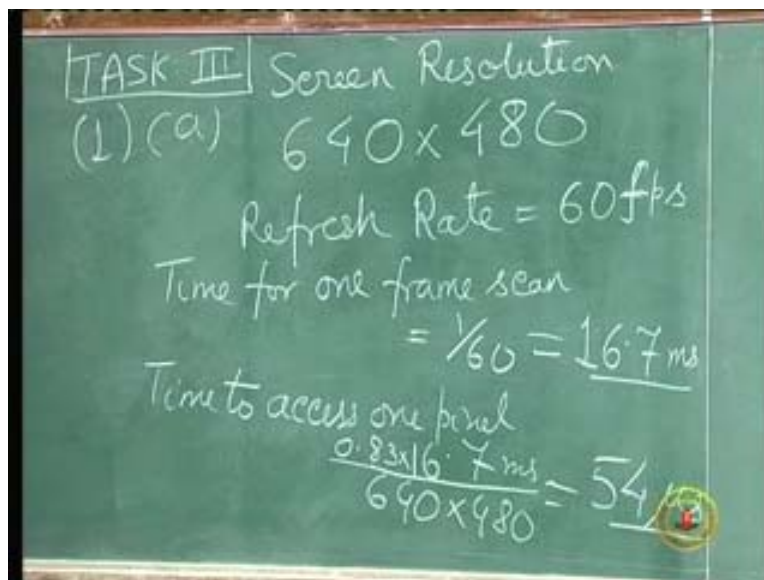 TASK III Screen Resolution
(1) (a) 640 x 480
Refresh Rate = 60fps
Time for one frame scan
= 1/60 = 16.7 ms
Time to access one pixel
0.83x16.7 ms
640x480
= 54